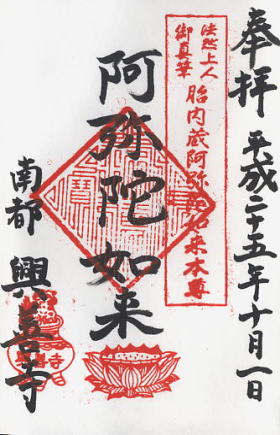 奉拝
平成二十五年十月一日
法然上人
御真筆
胎内蔵阿弥陀如来本尊
阿弥陀如来
南都
興善寺